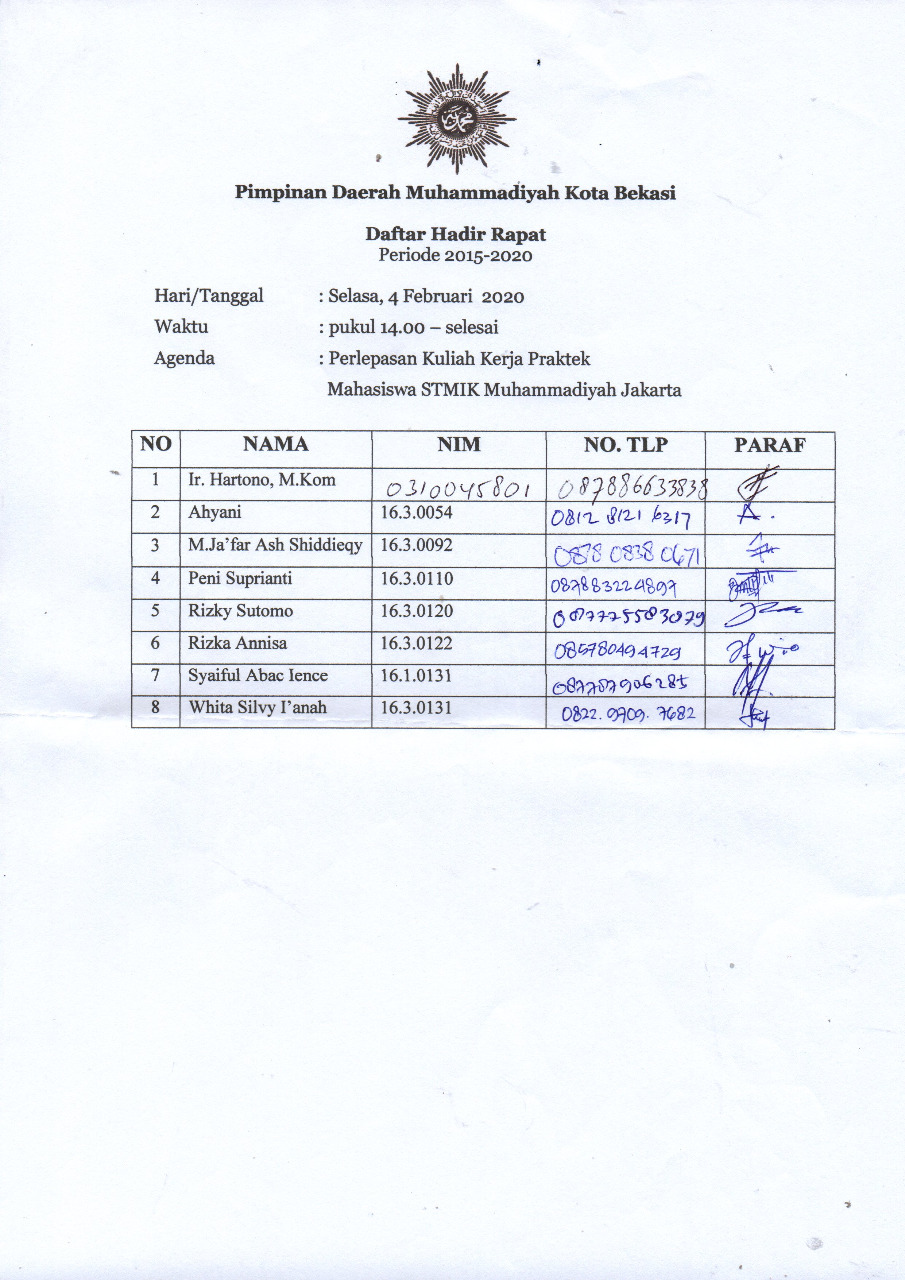 Pimpinan Daerah Muhammadiyah Kota Bekasi
Daftar Hadir Rapat
Periode 2015-2020
Hari/Tanggal : Selasa, 4 Februari 2020
Waktu : pukul 14.00 – selesai
Agenda : Perlepasan Kuliah Kerja Praktek
Mahasiswa STMIK Muhammadiyah Jakarta
NO NAMA NIM NO. TLP PARAF
1 Ir. Hartono, M.Kom 0310045801 087886633838
2 Ahyani 16.3.0054 0812 8121 6317
3 M.Ja'far Ash Shiddieqy 16.3.0092 0878 0838 0671
4 Peni Suprianti 16.3.0110 087883224897
5 Rizky Sutomo 16.3.0120 087775583079
6 Rizka Annisa 16.3.0122 085780494729
7 Syaiful Abac Ience 16.1.0131 087787906285
8 Whita Silvy I'anah 16.3.0131 0822.9709.7682